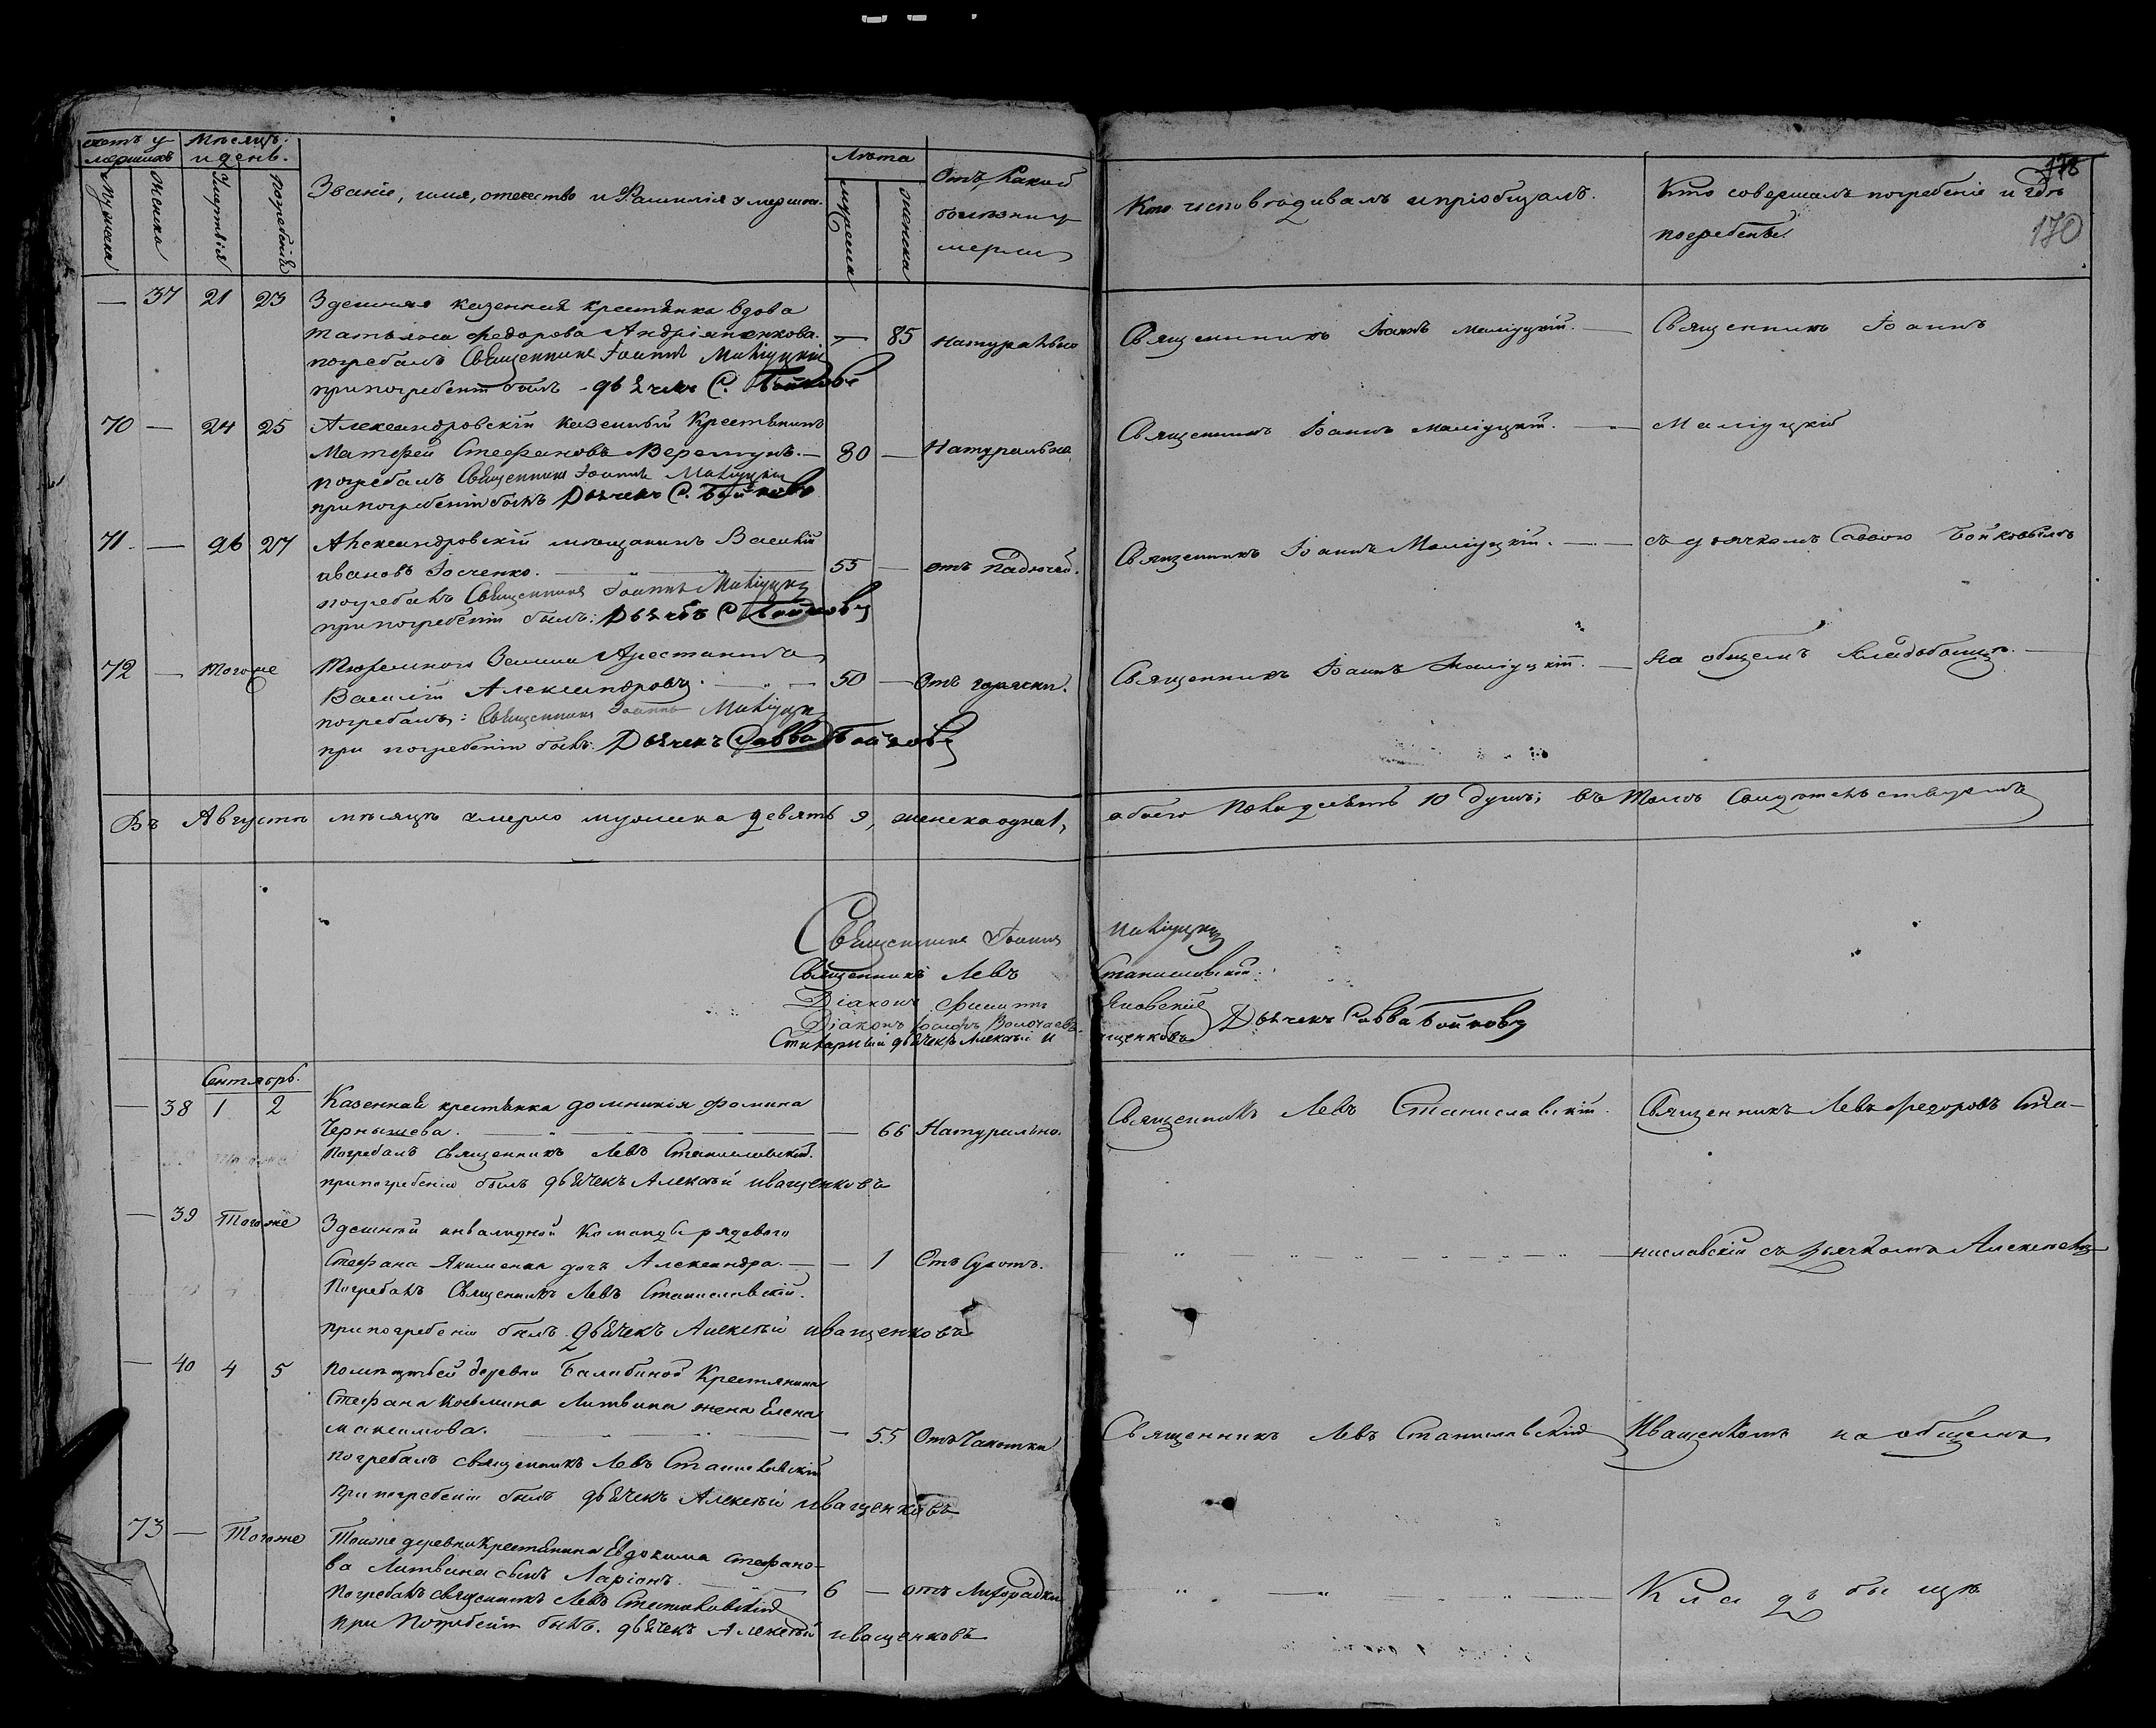 счетъ у-
мершихъ
Мѣсяцъ
и день.
Мужеска
Женска
Умертвія
Погребенія
Званіе, имя, отечество и Фамилія умерших.
Лѣта
мужеска
женска
Отъ какой
болѣзни у-
мерли
Кто исповѣдывалъ и пріобщалъ.
Кто совершалъ погребеніе и гдѣ
погребены.
178
170
— 37 21 23 Здешняя казенная крестьянка вдова
Татьяна Федорова Андріяненкова. — 85 Натурально Священникъ Іоаннъ Маліуцкій. — Священникъ Іоаннъ
погребалъ Священникъ Іоаннъ Маліуцкій
при погребеніи былъ дьячекъ С. Бойковъ
70 — 24 25 Александровскій казенный Крестьянинъ
Матфей Стефановъ Веремунъ. — 80 — Натурально Священникъ Іоаннъ Маліуцкій. — Маліуцкій
погребалъ Священникъ Іоаннъ Маліуцкій
при погребеніи былъ Дьячекъ С. Бойковъ
71. — 26 27 Александровскій мещанинъ Василій
ивановъ 55 — отъ падючей. Священникъ Іоаннъ Маліуцкій. — съ дьячкомъ Саввою Бойковымъ
погребалъ Священникъ Іоаннъ Маліуцкій
при погребеніи былъ: Дьячекъ С Бойковъ
72 — Тогоже Тюремнаго Замка Арестантъ
Василій Александровъ. — 50 — Отъ горячки. Священникъ Іоаннъ Маліуцкій. — на общемъ кладобищѣ. —
погребалъ: Священникъ Іоаннъ Маліуцкій
при погребеніи былъ: Дьячекъ Савва Бойковъ
Въ Августѣ мѣсяцѣ умерло мужеска девять 9, женска одна 1, обоего пола десять 10 душъ; въ томъ свидѣтельствуемъ
Священникъ Іоаннъ Маліуцкій
Священникъ Левъ Станиславскій.
Діаконъ Филиппъ Яновскій
Діаконъ Іосифъ Волочаевъ Дьячекъ Савва Бойковъ
Стихарный дьячекъ Алексѣй Иващенковъ
Сентябрь.
— 38 1 2 Казенная крестьянка домникія фомина
Чернышева. — 66 Натурально. Священникъ Левъ Станиславскій. Священникъ Левъ Федоровъ Ста-
Погребалъ священникъ Левъ Станиславскій.
при погребеніи былъ дьячекъ Алексѣй иващенковъ
— 39 Тогоже Здешней инвалидной Команды рядового
Стефана Якименка дочь Александра. — — 1 Отъ Сухотъ. — " — " — ниславскій съ Дьячкомъ Алексѣемъ
Погребалъ Священникъ Левъ Станиславскій.
при погребеніи былъ дьячекъ Алексѣй иващенковъ
— 40 4 5 помѣщичьей деревни Балабиной Крестянина
Стефана Косьмина Литвина жена Елена
максимова. — 55 Отъ Чахотки Священникъ Левъ Станиславскій Иващенкомъ на общемъ
погребалъ священникъ Левъ Станиславскій
при погребеніи былъ дьячекъ Алексѣй иващенковъ
73 — Тогоже Тоиже деревни Крестьянина Евдокима Стефано-
ва Литвина сынъ Ларіонъ. — 6 — отъ Лихорадки " — " — Кладъбищѣ
погребалъ священникъ Левъ Станиславскій
при погребеніи былъ. дьячекъ Алексѣй иващенковъ